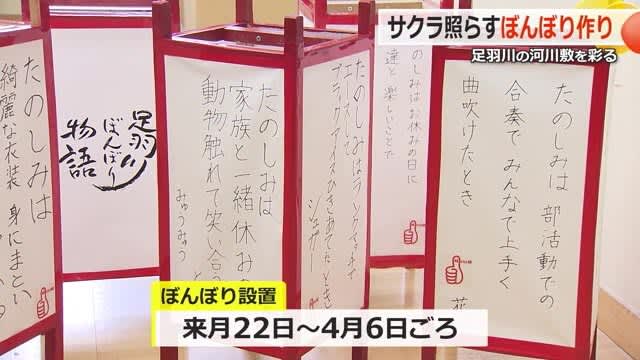 サクラ照らすぼんぼり作り
足羽川の河川敷を彩る
たのしみは
綺麗な衣装 身にまとい
足羽川
ぼんぼり
物語
たのしみは
家族と一緒 休み
動物触れて 笑い合
みゅうみゅう
たのしみはランクマッチで
エースして
シェザー
のしみはお休みの日に
達と 楽しいことで
たのしみは 部活動での
合奏で みんなで上手く
曲吹けたとき
ぼんぼり設置
来月22日～4月6日ごろ